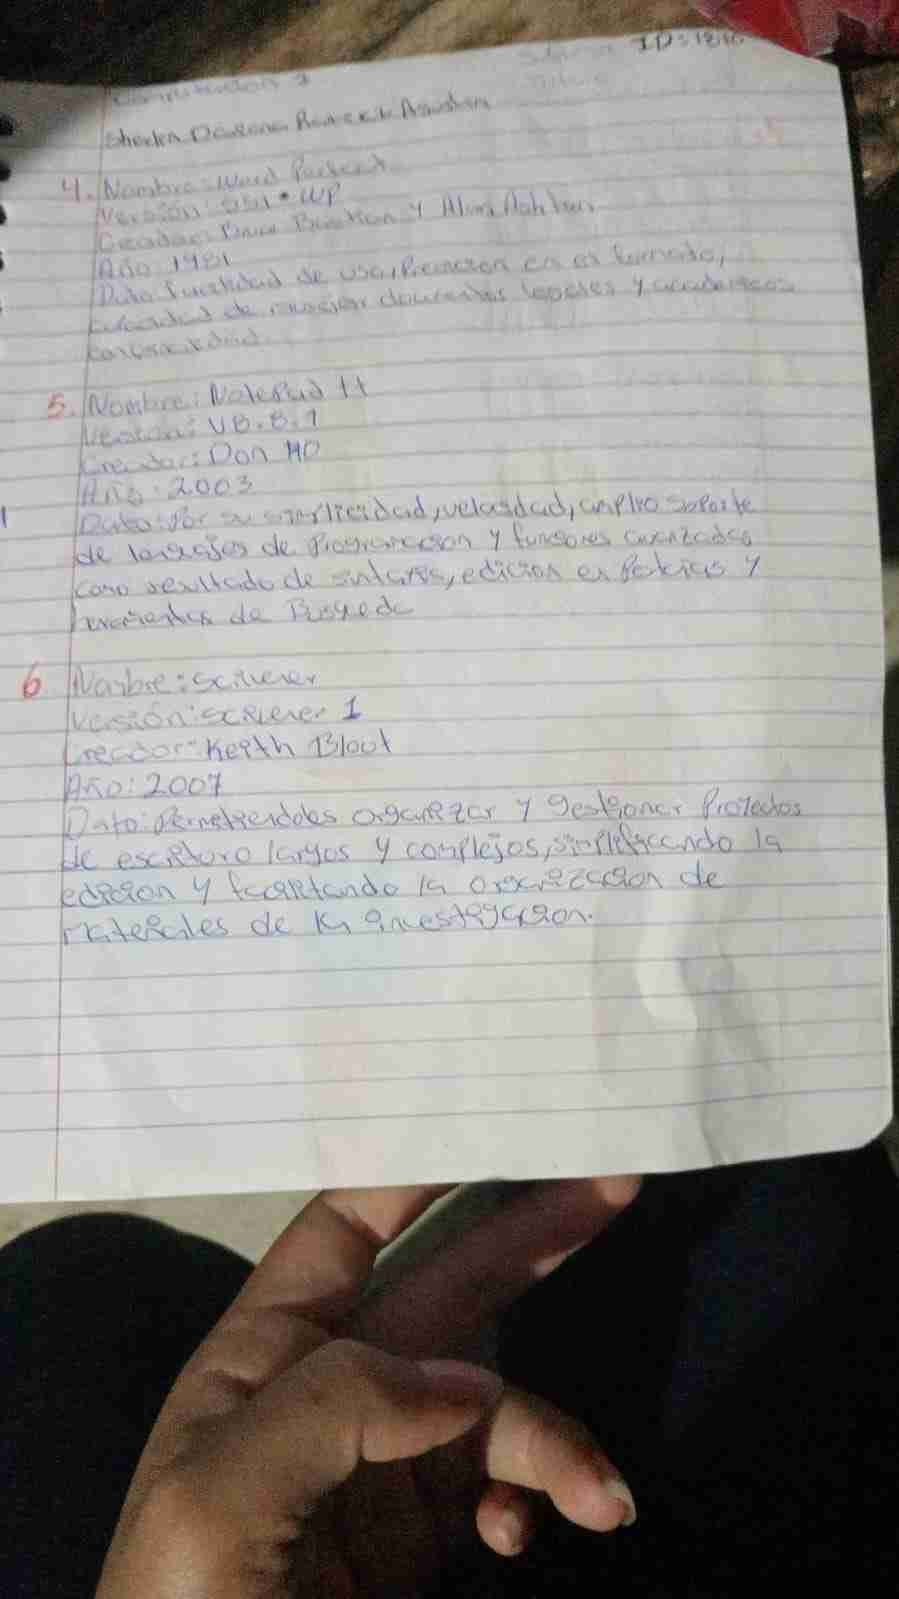 Computacion 1
ID: 18
4. Nombre: Word Perfect
Version: SSI • WP
Creador: Bruce Bastian Y Alan Ashton
Año 1981
Dato facilidad de uso, Precision en el formato,
de documentos legales y academicos
5. Nombre: NotePad ++
Version: V8.8.1
Creador: Don HO
Año: 2003
Dato: Por su simplicidad, velocidad, amplio soporte
de lenguajes de Programacion y funsiones avanzadas
como resultado de sintaxis, edicion en y
de Busqueda
6 Nombre: Scrivener
Versión: Scrivener 1
Creador: Keith Blout
Año: 2007
Dato: organizar y gestionar Proyectos
de escritura largos y complejos, simplificando la
edicion y facilitando la organizacion de
materiales de la investigacion.